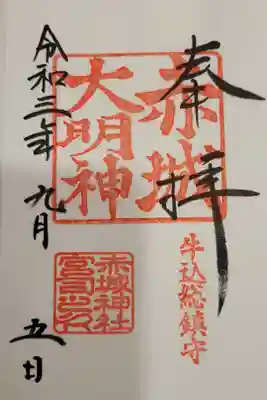 奉拝
赤城
大明神
牛込総鎮守
赤城神社
宮司之印
令和三年九月
五日